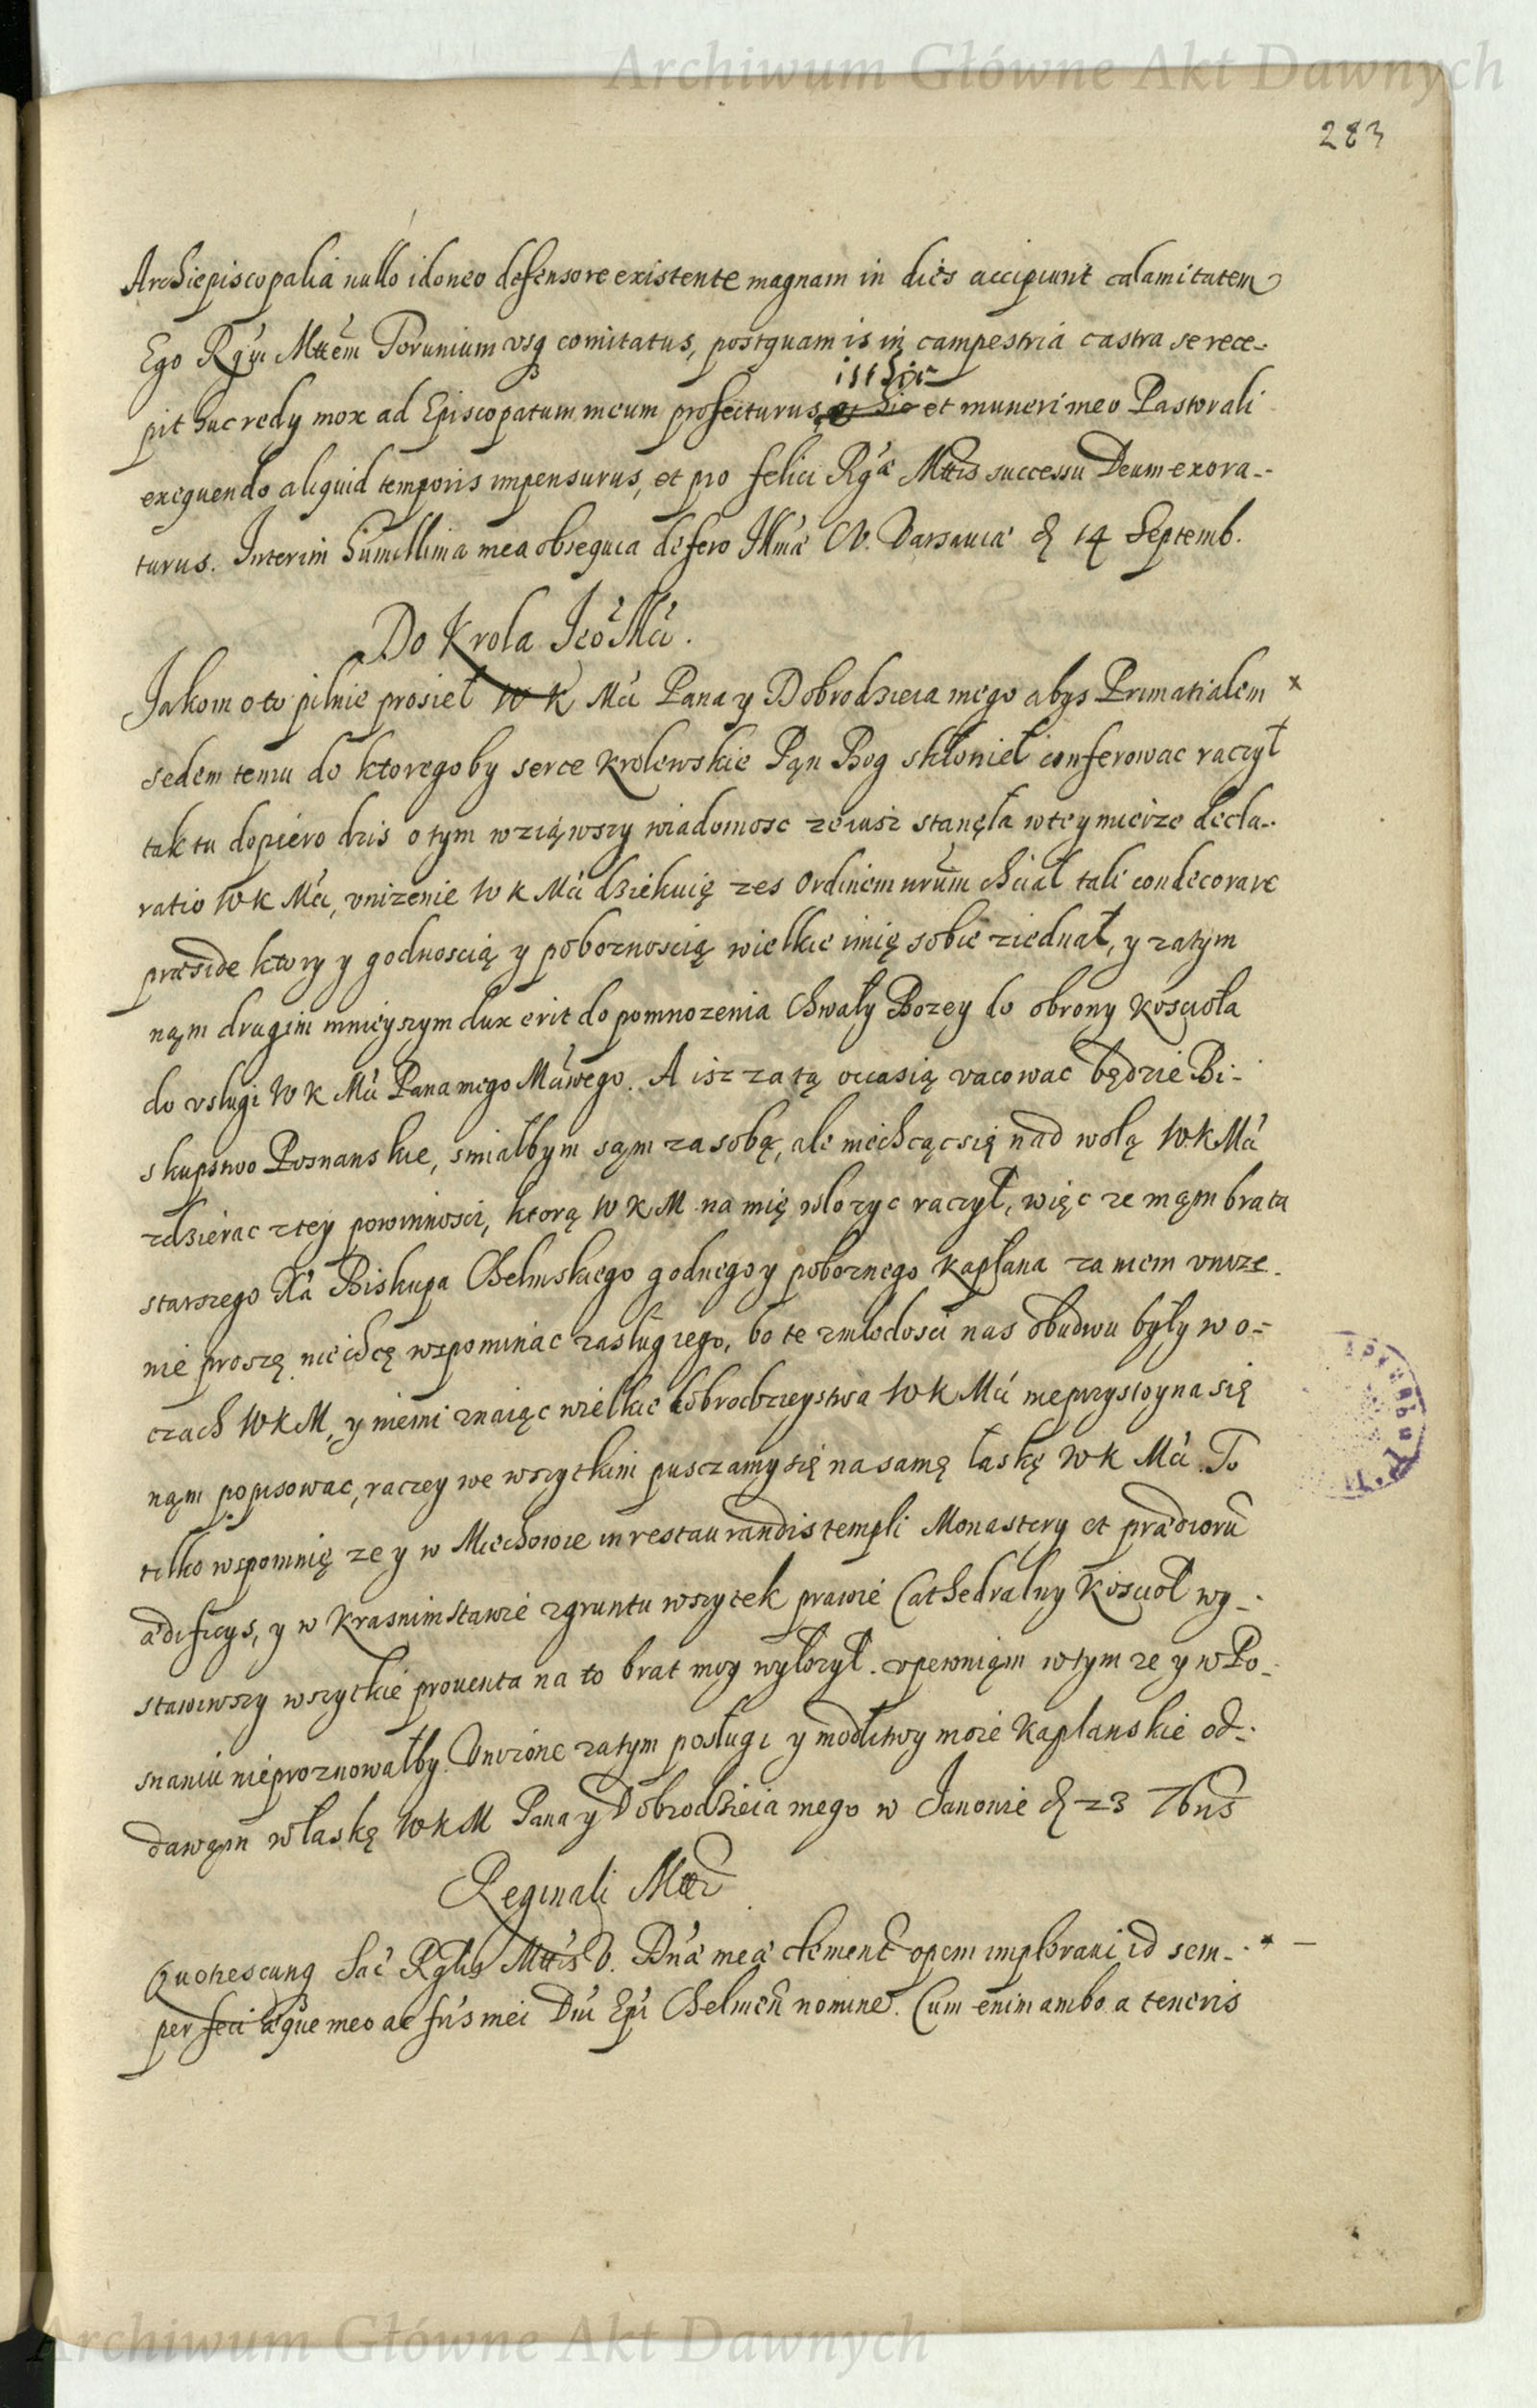 Archiwum Główne Akt Dawnych
283
Archiepiscopalia nullo idoneo defensore existente magnam in dies accipiunt calamitatem
Ego Rg̃m Mttem Torunium vsq comitatus, postquam is in campestria castra se rece-
isthic
pit huc redy mox ad Episcopatum meum profecturus, et hic et muneri meo Pastorali
exequendo aliquid temporis impensurus, et pro felici Rg̃æ Mttis successu Deum exora-
turus. Interim humillima mea obsequia defero Illmæ V. Varsauiæ d 14 Septemb.
Do Krola Jeo Mci.
Jakom o to pilnie prosieł W K Mci Pana y Dobrodzieia mego abys Primatialem x
sedem temu do ktoregoby serce krolewskie Pąn Bog skłonieł conferowac raczył
tak tu dopiero dzis o tym wziąwszy wiadomosc ze iusz stanęła w tey mierze decla-
ratio W K Mci, vnizenie W K Mci dziekuię zes Ordinem nrum chciał tali condecorare
præside ktory y godnoscią y poboznoscią wielkie imię sobie ziednał, y zatym
nąm drugim mnieyszym dux erit do pomnozenia Chwały Bozey do obrony Koscioła
do vslugi W K Mci Pana mego Mciwego. A isz za tą occasią vacowac będzie Bi-
skupstwo Posnanskie, smiałbym sąm za sobą, ale niechcąc się nad wolą W K Mci
zdzierac z tey powinnosci, ktorą W K M na mię wlozyc raczył, więc ze mąm brata
starszego Xa Biskupa Chelmskiego godnego y poboznego kapłana za niem vnize-
nie proszę niechcę wspominac zasług iego, bo te z mlodosci nas obudwu były w o-
czach W K M, y niemi znaiąc wielkie dobrodzieystwa W K Mci nieprzystoyna się
nąm popisowac, raczey we wszytkim pusczamy się na samę łaskę W K Mci. To
tilko wspomnię ze y w Miechowie in restaurandis templi Monastery et prædiorũ
ædificys, y w Krasnimstawie z gruntu wszytek prawie Cathedralny Kosciol wy-
stawiwszy wszytkie prouenta na to brat moy wylozył. vpewniąm w tym ze y w Po-
snaniu nieproznowałby. Vnizone zatym posługi y modlitwy moie kaplanskie od-
dawąm w łaskę W K M Pana y Dobrodzieia mego w Janowie d 23 7bris
Reginali Mtti
Quotiescunq Sac Rg̃lis Mttis V. Dnæ meæ clement opem imploraui id sem- * –
per feci æque meo ac fris mei Dni Epi Chelmen nomine. Cum enim ambo a teneris
Archiwum Główne Akt Dawnych